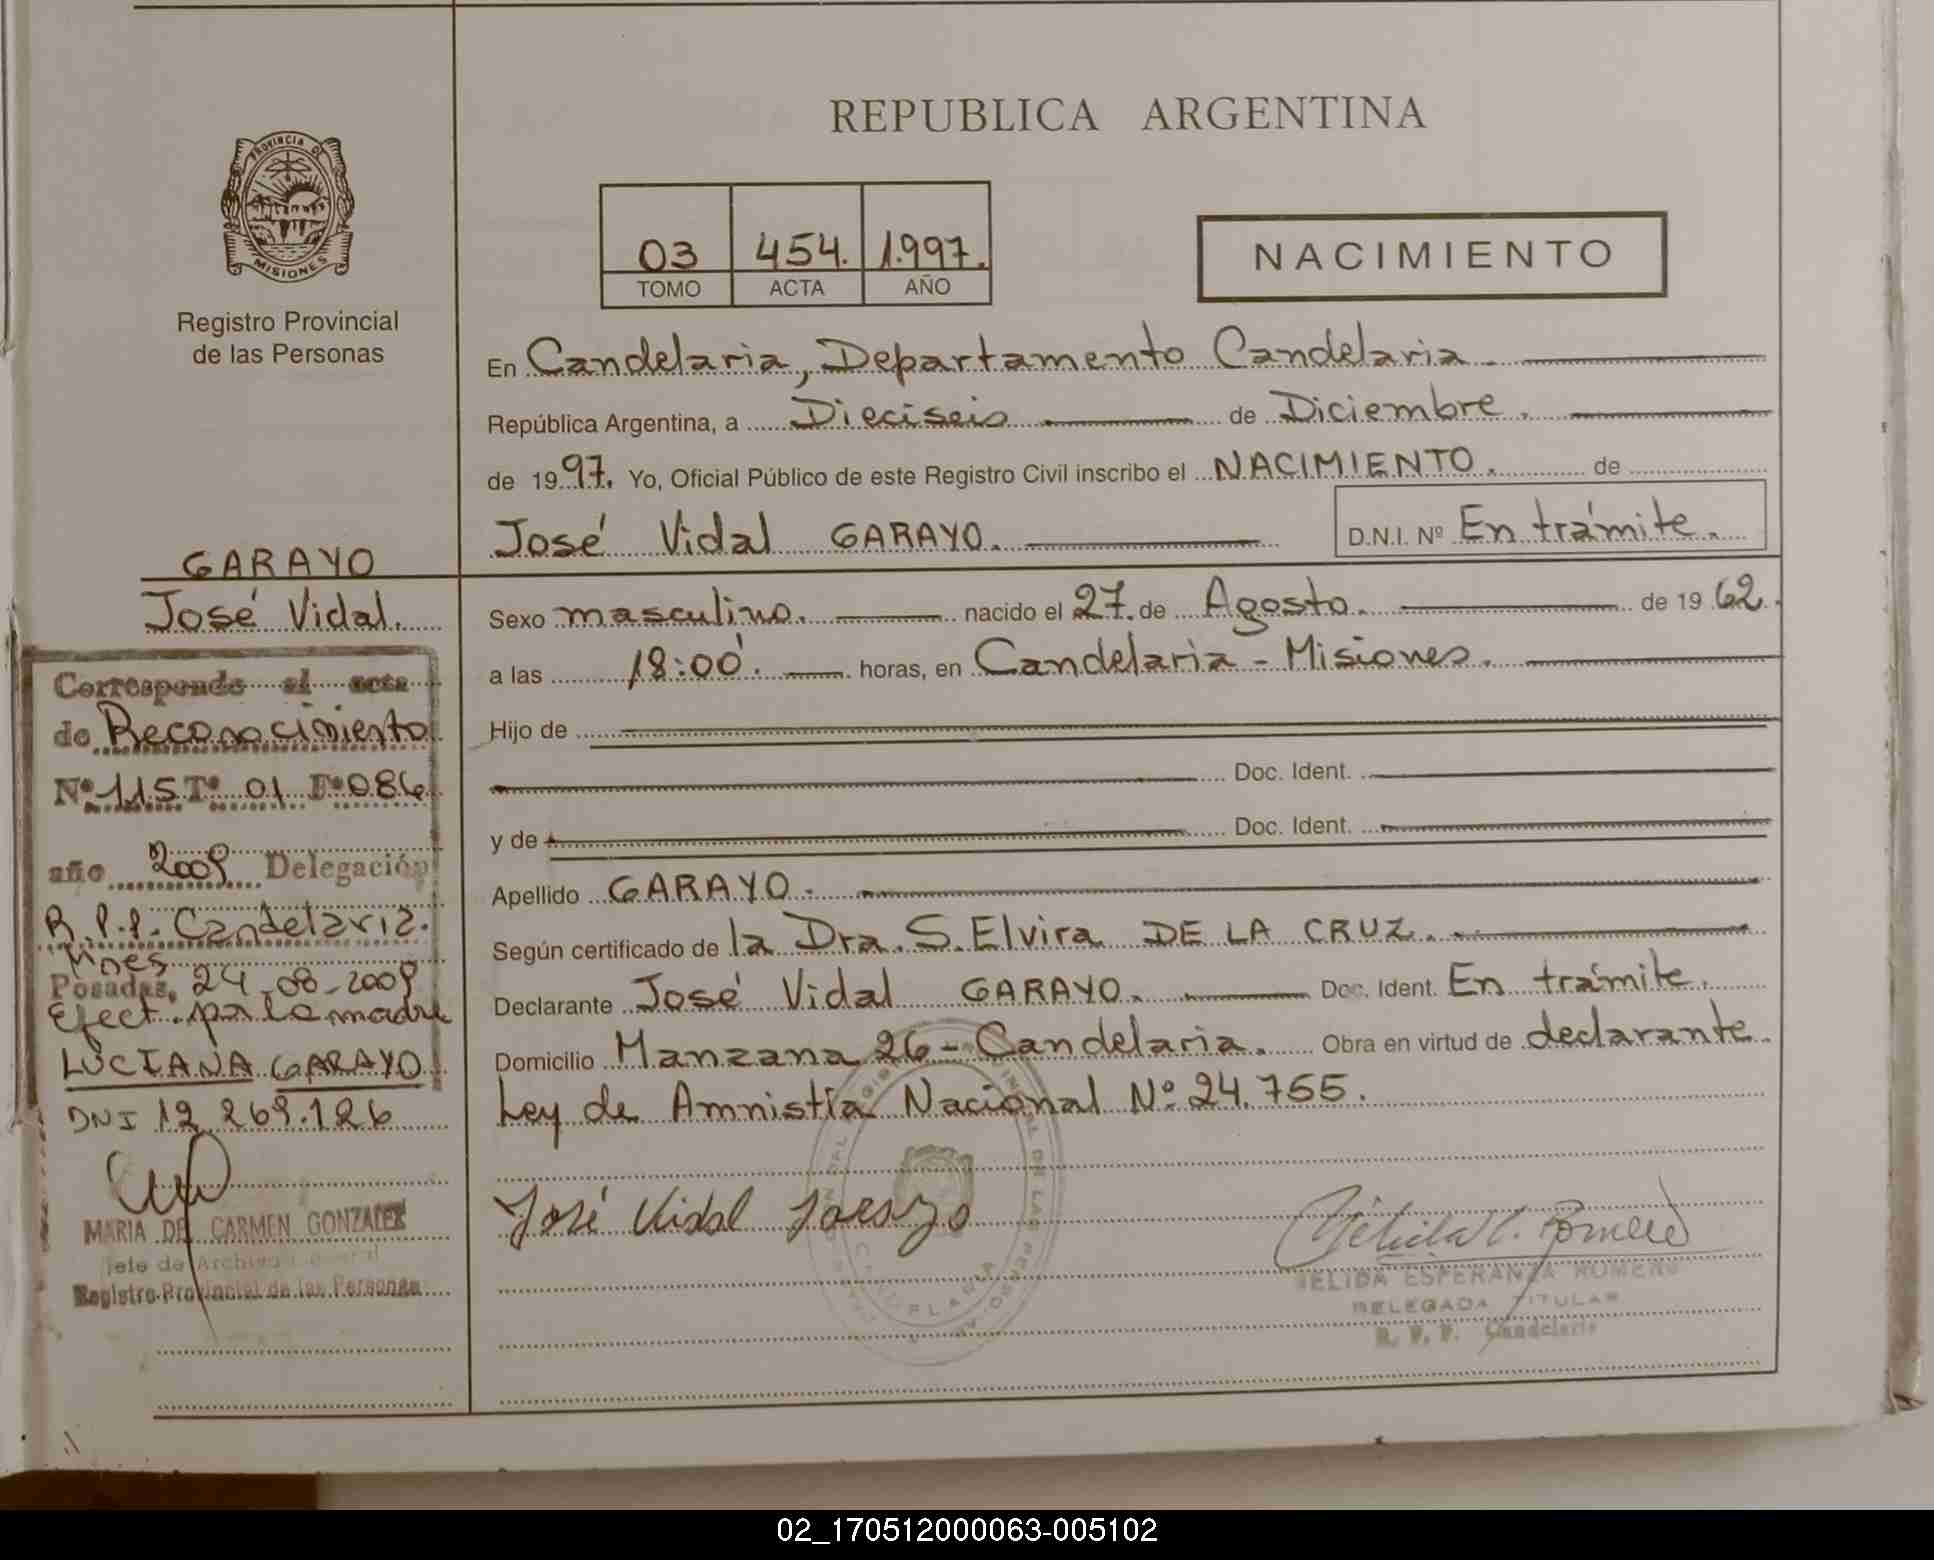 REPUBLICA ARGENTINA
PROVINCIA DE
MISIONES
Registro Provincial
de las Personas
03 454. 1.997.
TOMO ACTA AÑO
NACIMIENTO
En Candelaria, Departamento Candelaria.
República Argentina, a Dieciseis de Diciembre.
de 19 97. Yo, Oficial Público de este Registro Civil inscribo el NACIMIENTO. de
José Vidal GARAYO. D.N.I. Nº En trámite.
GARAYO
José Vidal.
Sexo masculino. nacido el 27. de Agosto. de 19 62.
a las 18:00. horas, en Candelaria - Misiones.
Hijo de
Doc. Ident.
y de Doc. Ident.
Apellido GARAYO.
Según certificado de la Dra. S. Elvira DE LA CRUZ.
Declarante José Vidal GARAYO. Doc. Ident. En trámite.
Domicilio Manzana 26 - Candelaria. Obra en virtud de declarante
Ley de Amnistía Nacional Nº 24.755.
José Vidal Garayo
ELIDA ESPERANZA ROMERO
DELEGADA TITULAR
R. P. P. Candelaria
Corresponde al acta
de Reconocimiento
Nº 115 Tº 01 Fº 086
año 2009 Delegación
R.P.P. Candelaria.
Mnes
Posadas, 24-08-2009
Efect. por la madre
LUCIANA GARAYO
DNI 12.269.126
MARIA DEL CARMEN GONZALEZ
Jefe de Archivo General
Registro Provincial de las Personas
02_170512000063-005102